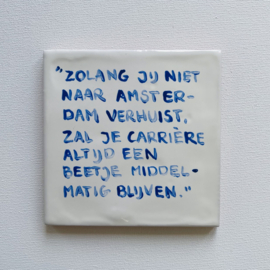 "ZOLANG JIJ NIET
NAAR AMSTER-
DAM VERHUIST,
ZAL JE CARRIÈRE
ALTIJD EEN
BEETJE MIDDEL-
MATIG BLIJVEN."